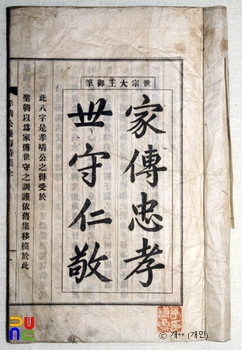 世宗大王御筆
家傳忠孝
世守仁敬
此八字是孝靖公之得受於
聖朝以爲家傳世守之訓謹依舊集移摸於此